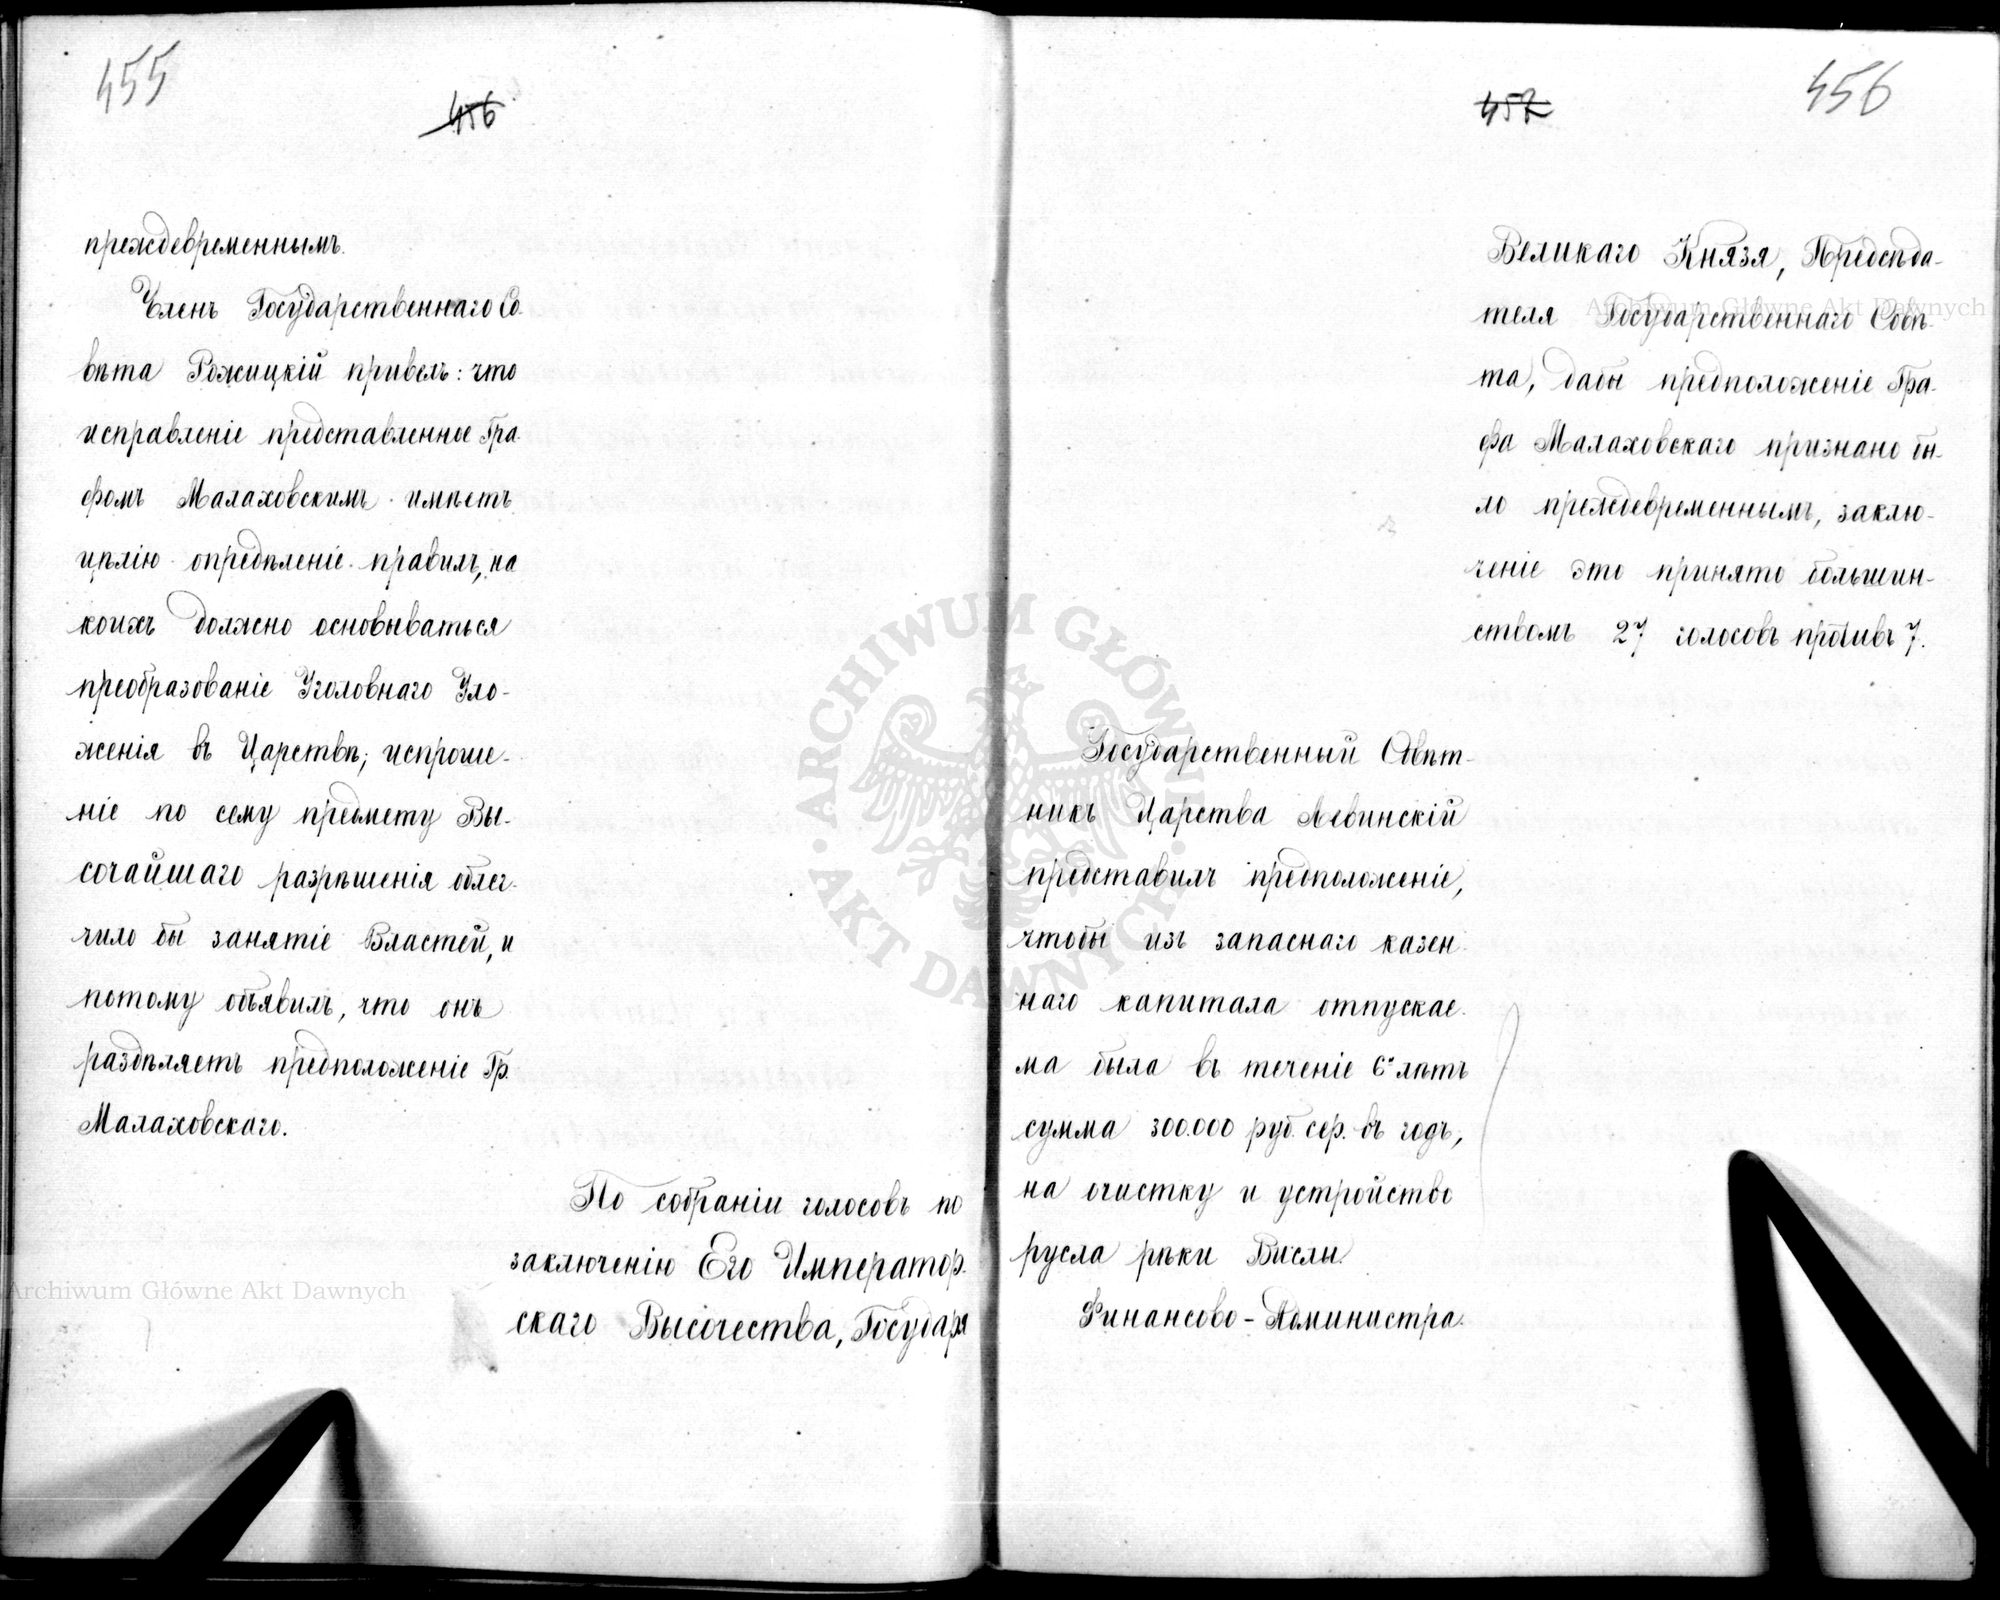 455
456
преждевременнымъ.
Членъ Государственнаго Со-
вѣта Рожицкій привелъ: что
исправленіе представленное Гра-
фомъ Малаховскимъ имѣетъ
цѣлію опредѣленіе правилъ, на
коихъ должно основываться
преобразованіе Уголовнаго Уло-
женія въ Царствѣ; испроше-
ніе по сему предмету Вы-
сочайшаго разрѣшенія облег-
чило бы занятіе Властей, и
потому объявилъ, что онъ
раздѣляетъ предположеніе Гр.
Малаховскаго.
По собраніи голосовъ по
заключенію Его Император-
скаго Высочества, Государя
457
456
Великаго Князя, Предсѣда-
теля Государственнаго Совѣ-
та, дабы предположеніе Гра-
фа Малаховскаго признано бы-
ло преждевременнымъ, заклю-
ченіе это принято большин-
ствомъ 27 голосовъ противъ 7.
Государственный Совѣт-
никъ Царства Левинскій
представилъ предположеніе,
чтобы изъ запаснаго казен-
наго капитала отпускае-
ма была въ теченіе 6и лѣтъ
сумма 300.000 руб. сер. въ годъ,
на очистку и устройство
русла рѣки Вислы.
Финансово-Администра-
Archiwum Główne Akt Dawnych
Archiwum Główne Akt Dawnych
ARCHIWUM GŁÓWNE · AKT DAWNYCH ·